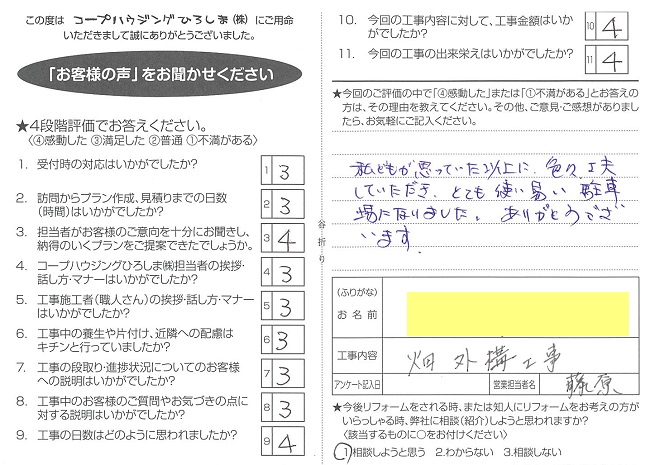 この度は コープハウジングひろしま(株) にご用命
いただきまして誠にありがとうございました。
「お客様の声」をお聞かせください
★4段階評価でお答えください。
〈④感動した ③満足した ②普通 ①不満がある〉
1. 受付時の対応はいかがでしたか? 1 3
2. 訪問からプラン作成、見積りまでの日数
(時間)はいかがでしたか? 2 3
3. 担当者がお客様のご意向を十分にお聞きし、
納得のいくプランをご提案できたでしょうか。 3 4
4. コープハウジングひろしま㈱担当者の挨拶・
話し方・マナーはいかがでしたか? 4 3
5. 工事施工者(職人さん)の挨拶・話し方・マナー
はいかがでしたか? 5 3
6. 工事中の養生や片付け、近隣への配慮は
キチンと行っていましたか? 6 3
7. 工事の段取り・進捗状況についてのお客様
への説明はいかがでしたか? 7 3
8. 工事中のお客様のご質問やお気づきの点に
対する説明はいかがでしたか? 8 3
9. 工事の日数はどのように思われましたか? 9 4
谷折り
10. 今回の工事内容に対して、工事金額はいか
がでしたか? 10 4
11. 今回の工事の出来栄えはいかがでしたか? 11 4
★今回のご評価の中で「④感動した」または「①不満がある」とお答えの
方は、その理由を教えてください。その他、ご意見・ご感想がありまし
たら、お気軽にご記入ください。
私どもが思っていた以上に、色々工夫
していただき、とても使い易い駐車
場になりました。ありがとうござ
います
(ふりがな)
お名前
工事内容 畑 外構工事
アンケート記入日 営業担当者名 藤原
★今後リフォームをされる時、または知人にリフォームをお考えの方が
いらっしゃる時、弊社に相談(紹介)しようと思われますか?
〈該当するものに○をお付けください〉
1.相談しようと思う 2.わからない 3.相談しない